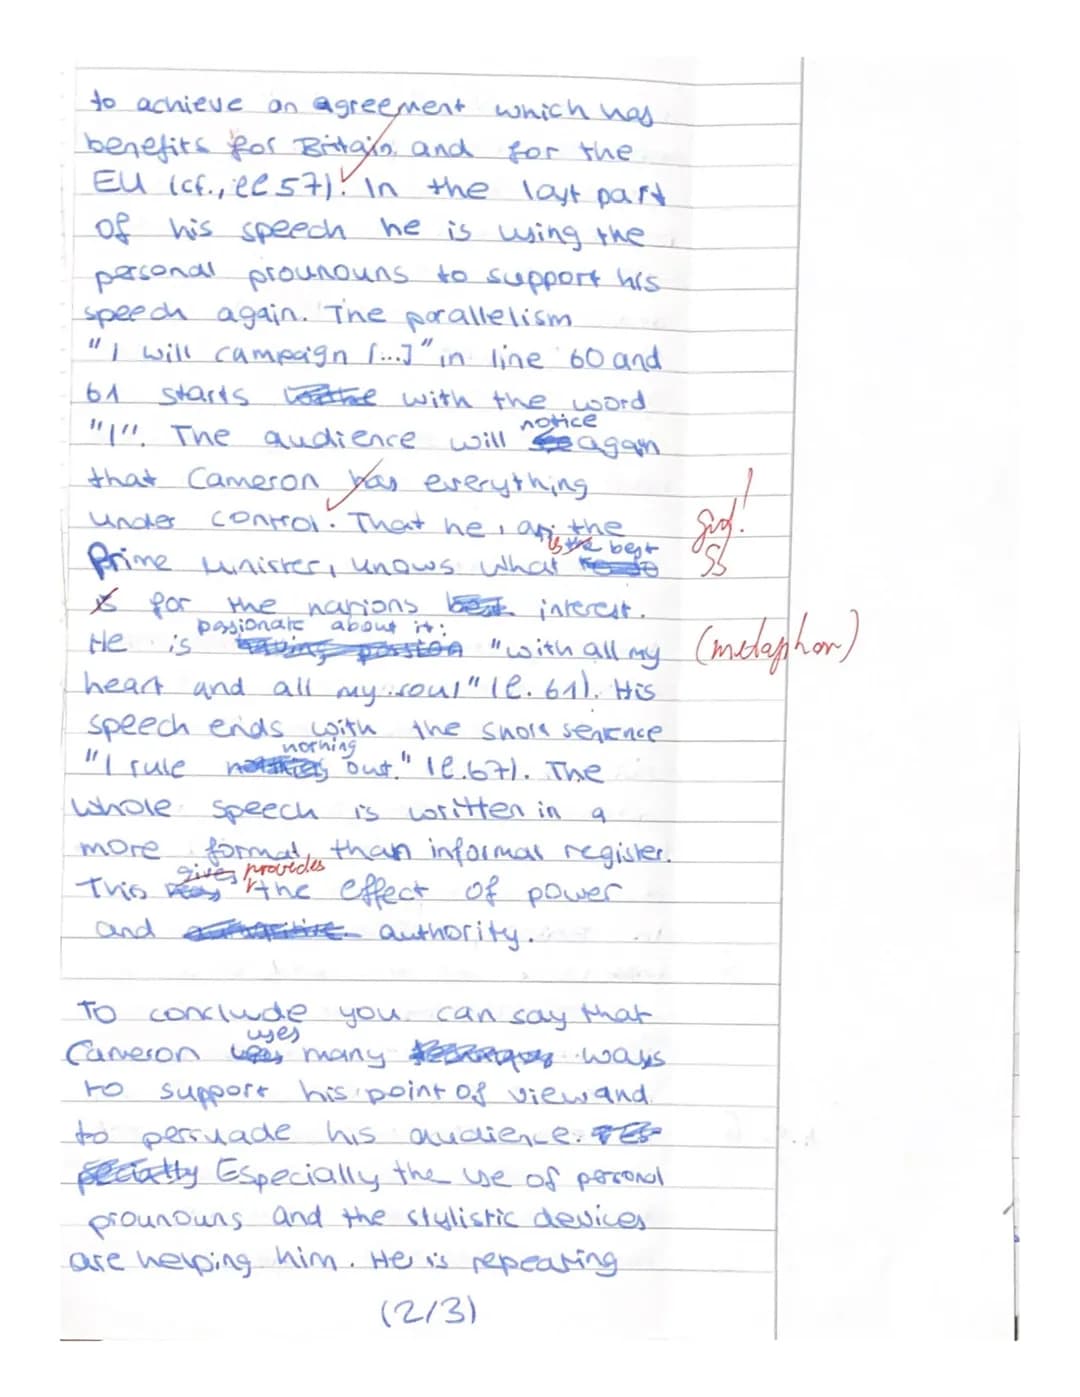 to achieve an agreement which has
benefits for Britain and for the
EU (cf., ll 57). In the last part
of his speech he is using the
personal prounouns to support his
speech again. The parallelism
"I will campaign [...]" in line 60 and
61 starts with the word
"I". The audience will notice again
that Cameron has everything
under control. That he, as the
Prime Minister, knows what is the best
for the nations interest.
He is passionate about it: "with all my
(metaphor)
heart and all my soul" (l. 61). His
speech ends with the short sentence
"I rule nothing out." (l.67). The
whole speech is written in a
more formal, than informal register.
This gives provides the effect of power
and authority.
To conclude you can say that
Cameron uses many ways
to support his point of view and
to persuade his audience.
Especially the use of personal
prounouns and the stylistic devices
are helping him. He is repeating
(2/3)